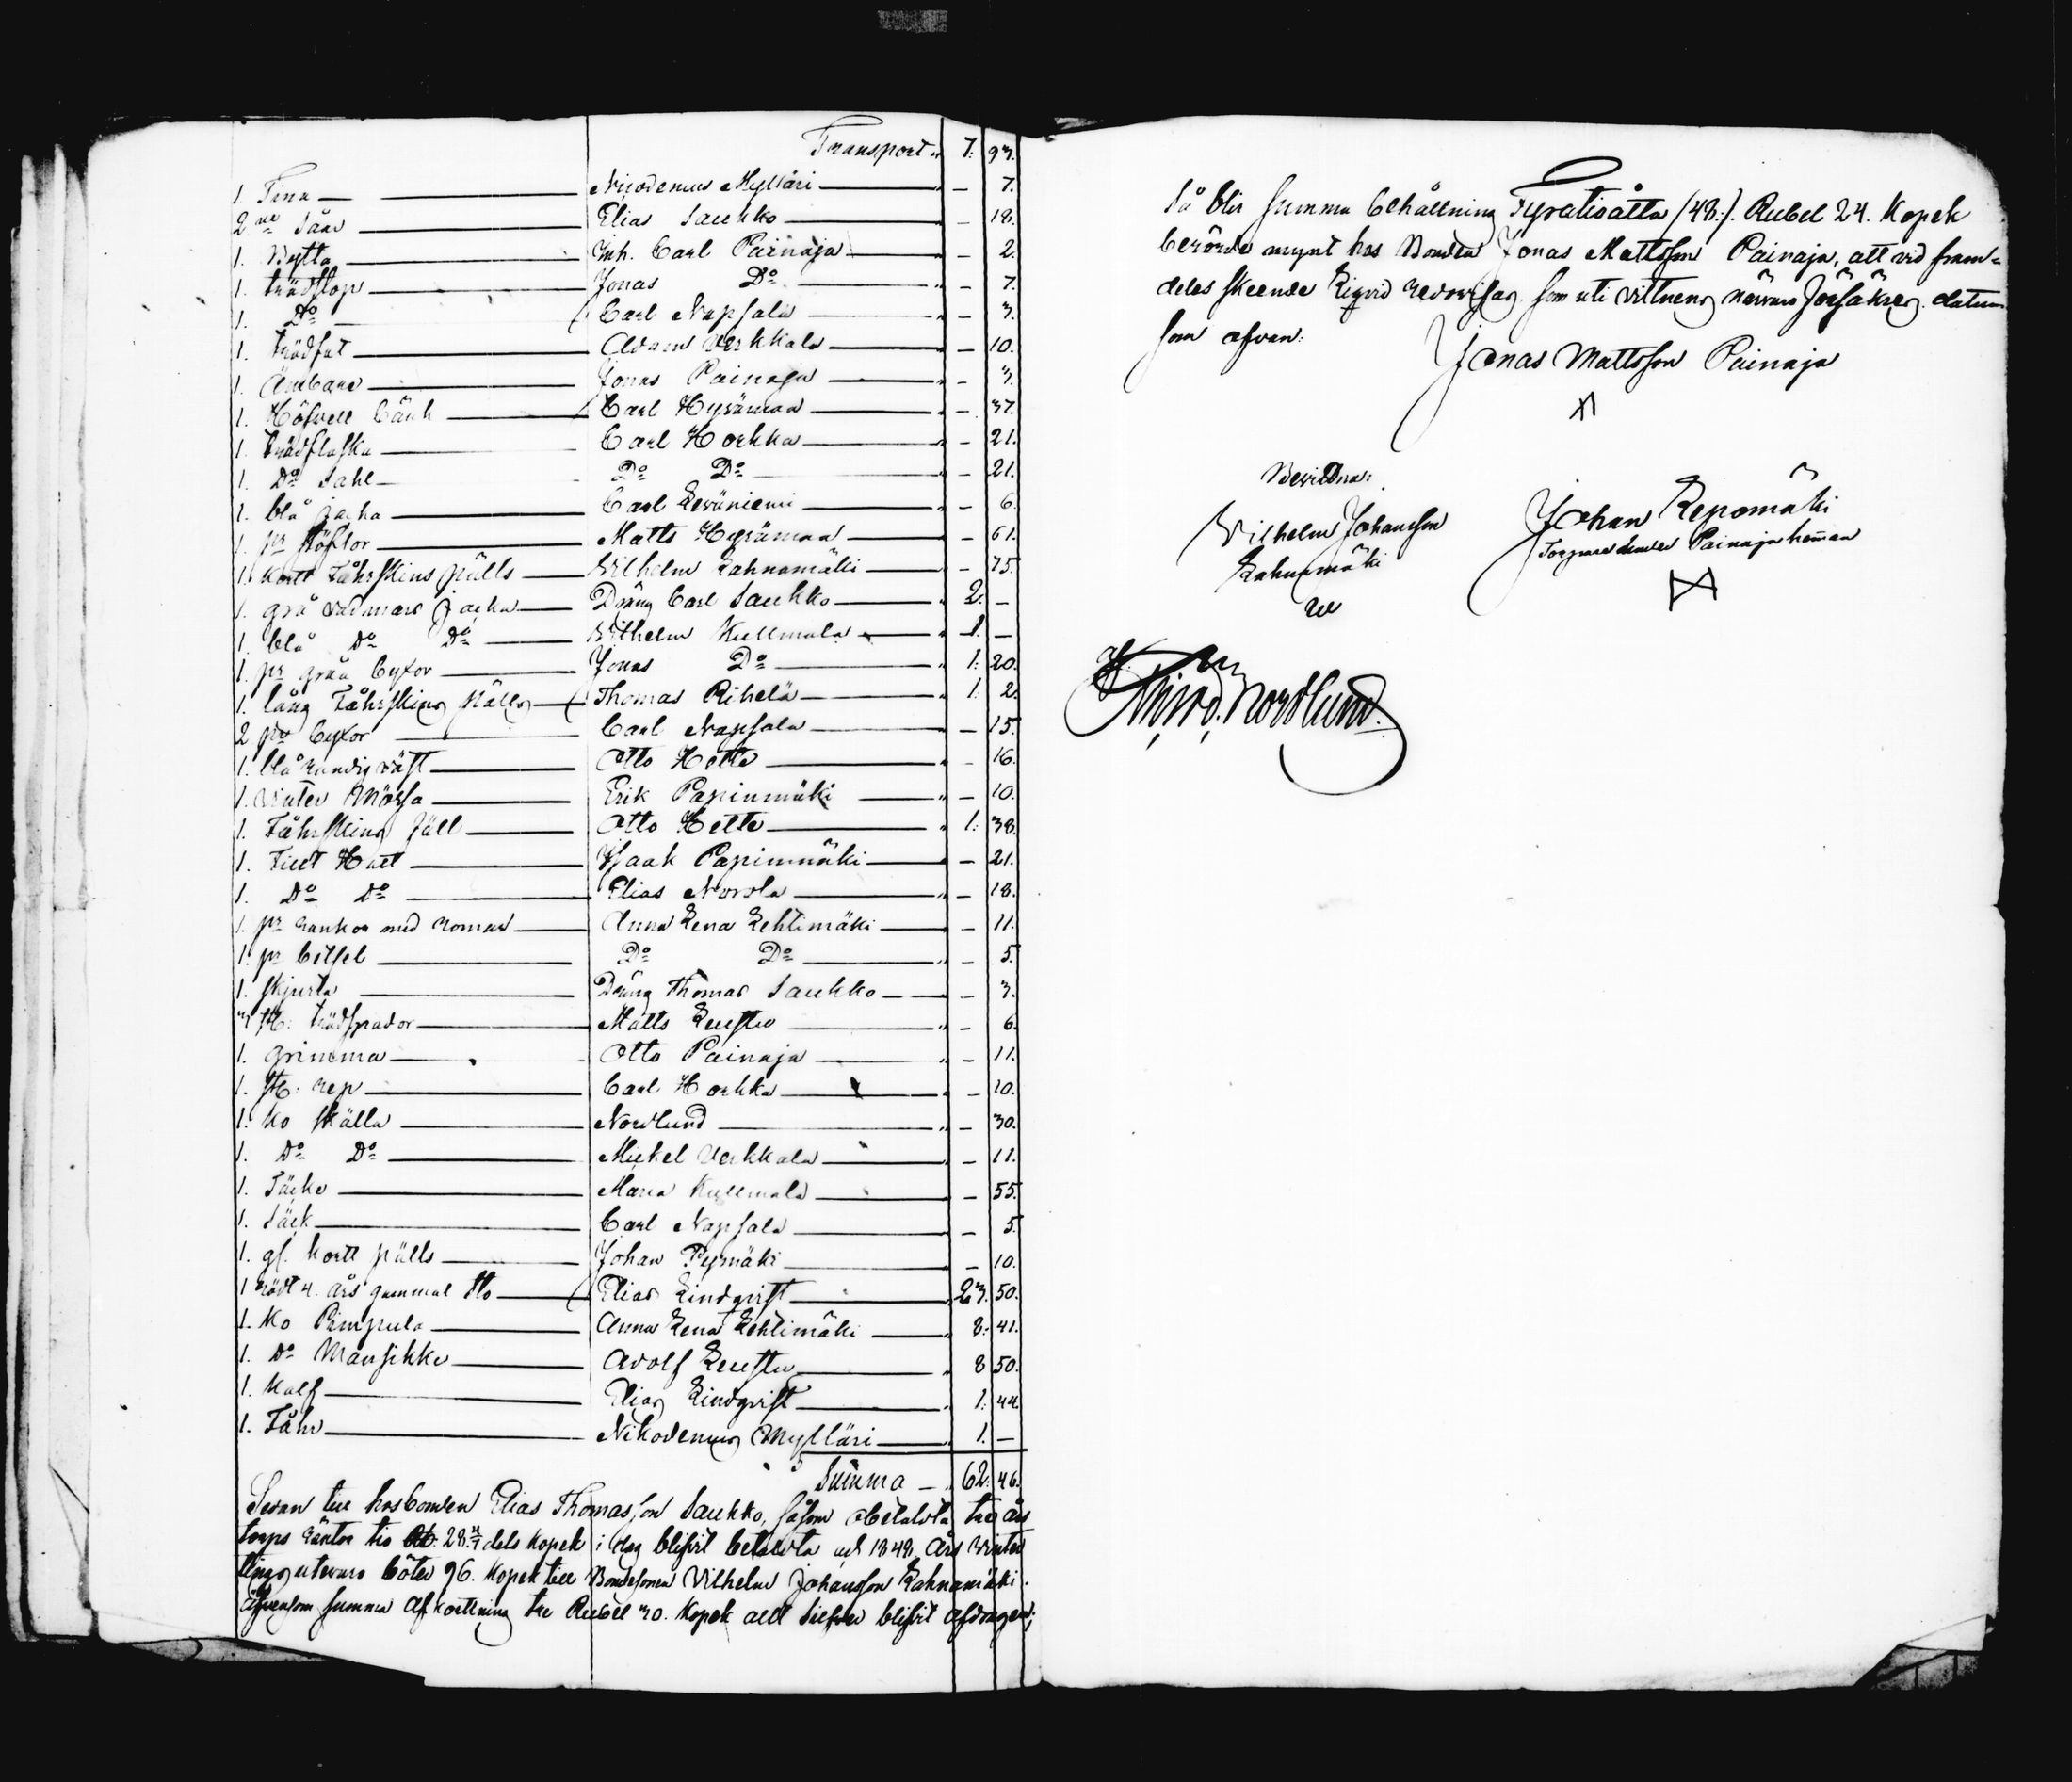 Transport „ 7: 93.
1. Tina — Nicodemus Mylläri — „ — 7.
2ne Såar — Elias Saukko — „ — 18.
1. Bytta — Inh. Carl Painaja — „ — 2.
1. trädstop — Jonas Do — „ — 7.
1. Do — Carl Napsala — „ — 3.
1. trädfat — Adam Verkkala — „ — 10.
1. Ämbare — Jonas Painaja — „ — 3.
1. Höfvell bänk — Carl Hyrämaa — „ — 37.
1. trädflaska — Carl Horkka — „ — 21.
1. Do Sahl — Do Do — „ — 21.
1. blå jacka — Carl Leväniemi — „ — 6.
1. pr Stöflor — Matts Hyrämaa — „ — 61.
1. kort Fåhrskins pälls — Vilhelm Kahnamäki — „ — 75.
1. grå vadmars jacka — Dräng Carl Saukko — „ 2. —
1. blå Do Do — Vilhelm Kullmala — „ 1. —
1. pr gråa byxor — Jonas Do — „ 1: 20.
1. lång Fåhrskins pälls — Thomas Rihelä — „ 1. 2.
2 pr byxor — Carl Napsala — „ — 15.
1. blå randig väst — Otto Hette — „ — 16.
1. vinter Mössa — Erik Papinmäki — „ — 10.
1. Fåhrskins fäll — Otto Hette — „ 1: 38.
1. Filt Hatt — Isaak Papinmäki — „ — 21.
1. Do Do — Elias — „ — 18.
1. pr rankor med — Anna Lena Lehtimäki — „ — 11.
1. pr betsel — Do Do — „ — 5.
1. Skjorta — Dräng Thomas Saukko — — 3.
3 st: trädspador — Matts — „ — 6.
1. grimma — Otto Painaja — „ — 11.
1. st: rep — Carl Horkka — „ — 10.
1. ko skälla — Nordlund — „ — 30.
1. Do Do — Mickel Verkkala — „ — 11.
1. Täcke — Maria Kullmala — „ — 55.
1. Säck — Carl Napsala — „ — 5.
1. gl. kort pälls — Johan Pyymäki — — 10.
1 rödt 4. års gammal Sto — Elias Lindqvist — „ 23. 50.
1. Ko Pimpula — Anna Lena Lehtimäki — „ 8: 41.
1. Do Mansikke — Adolf — „ 8 50.
1. Kalf — Elias Lindqvist — „ 1: 44.
1. Fåhr — Nikodemus Mylläri — „ 1. —
Summa — „ 62: 46.
Sedan till husbonden Elias Thomasson Saukko, såsom obetalda tre års
torps räntor tio 28 4/7 dels Kopek i dag blifvit betalda och 1848. Års vinter
tings utevaro böter 96. Kopek till Bondesonen Vilhelm Johansson Kahnamäki.
äfvensom summa afkortning tre Rubel 30. Kopek allt Silfver blifvit afdragen;
Så blir Summa behållning Fyratioåtta /48:/. Rubel 24. Kopek
berörde mynt hos Bonden Jonas Mattsson Painaja, att vid fram-
deles skeende Liqvid redovisas, som uti vittnens närvaro försäkras. datum
som ofvan:
Jonas Mattsson Painaja
Bevittna:
Vilhelm Johansson
Kahnamäki
Johan Repomäki
Torpare under Painaja heman
Nordlund.